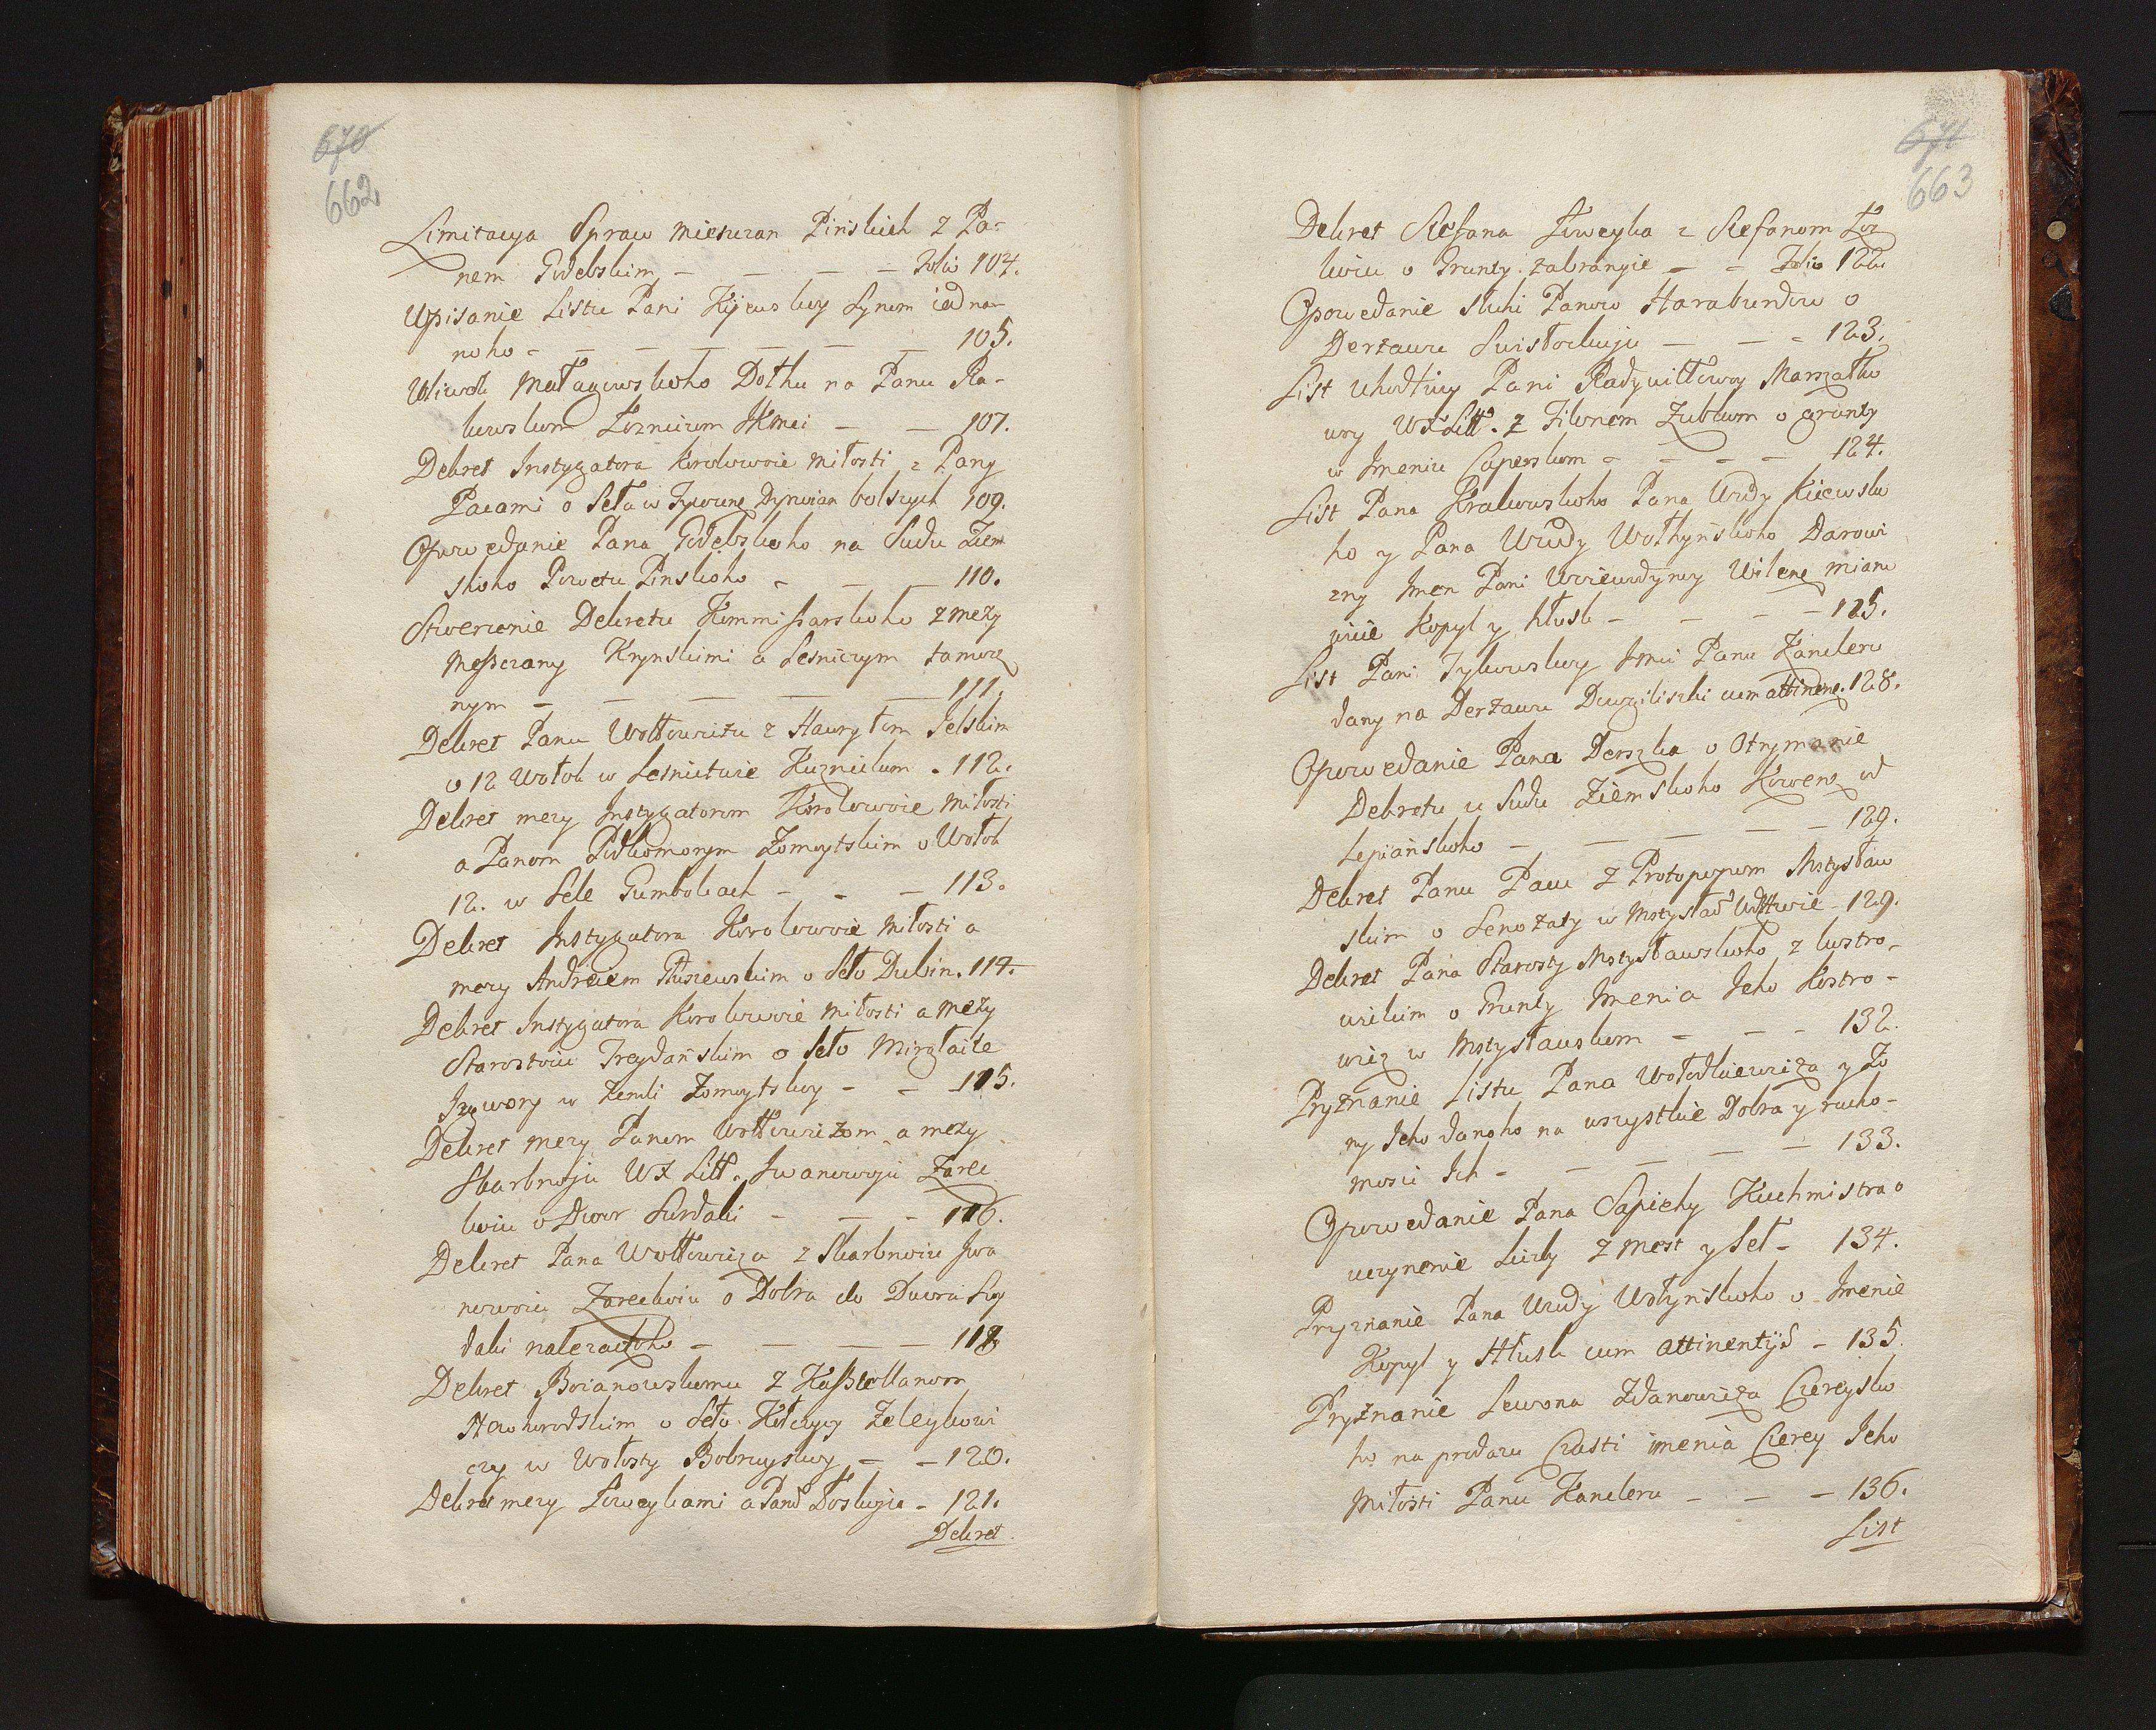 670
662
Limitacya Spraw mieszczan Pinskich z Pa-
nem Godebskim - - - - Folio 104.
Wpisanie Listu Pani Kijewskoy Synom iedna-
noho - - - - - - - 105.
Wiwod Małagowskoho Dołhu na Panu Ra-
kowskom Łozniczom JKMci - - 107.
Dekret Instygatora Korolewoie miłosti z Pany
Pacami o Seła w Tywunę Dyrwian bolszych 109.
Opowedanie Pana Godebskoho na Sudu Ziem
skoho Powetu Pinskoho - - - 110.
Stwerzenie Dekretu Kommissarskoho z mezy
Messczany Krynskimi a Lesniczym tamosz
nym - - - - - 111.
Dekret Panu Wołłowiczu z Hawryłom Jelskim
o 12 Wołok w Lesnictwie Kuznickom . 112.
Dekret mezy Instygatorom Korolewoie miłosti
a Panom Podkomorym Zomoytskim o Wołok
12. w Sele Gumbokach - - - 113.
Dekret Instygatora Korolewoie Miłosti a
mezy Andreiem Ruszewskim o Seło Dubin. 114.
Dekret Instygatora Korolewoie miłosti a mezy
Starostoiu Treydańskim o Seło Mirałaite
Izgwory w Zemli Zomoytskoy - - 115.
Dekret mezy Panom Wołłowiczom a mezy
Skarbnoju WX Litt. Iwanowoju Zarec
koiu o Dwor Surdaki - - - 116.
Dekret Pana Wołłowicza z Skarbnoiu Iwa
nowoiu Zareckoiu o Dobra do Dwora Sur
daki należaczoho - - - - 118
Dekret Boianowskomu z Kasztellanom
Nowhorodskim o Seło Kołczycy Zeleykowi
czy w Wołosty Bobruyskoy - - 120.
Dekret mezy Łoweykami a Pand Dosługiu - 121.
Dekret
671
663
Dekret Stefana Łoweyka z Stefanom Łoz
koiu o Grunty zabranyie - - Folio 122.
Opowedanie sluhi Panow Haraburdow o
Derzawu Swisłockuju - - - 123.
List uhodliwy Pani Radziwiłłowoy Marszałko
woy WXLitt. z Filonem Zubkom o grunty
w Imeniu Caperskom - - - - 124.
List Pana Krakowskoho Pana Wwdy Kiiewsko
ho y Pana Wwdy Wołhyńskoho Darowi
zny Imen Pani Woiewodynoy Wileng miano
wicie Kopyl y hłusk - - - - 125.
List Pani Tykowskoy Imci Panu Kancleru
dany na Derzawu Dwogiliszki cum attinene. 128.
Opowedanie Pana Derszka o Otrymanie
Dekretu u Sudu Ziemskoho Kowens od
Lepiańskoho - - - - - 129.
Dekret Panu Pacu z Protopopom Mstysław
skim o Senożaty w Mstysław Wdztwie - 129.
Dekret Pana Starosty Mstysławskoho z Lustro-
wickim o Grunty Imenia Jeho Kostro-
wicz w Mstysławskom - - - 132.
Pryznanie Listu Pana Wołodkiewicza y Żo
ny Jeho danoho na wszystkie Dobra y rucho-
mosci Ich - - - - - 133.
Opowedanie Pana Sapiehy Kuchmistra o
uczynenie Liczby z mest y Seł - 134.
Pryznanie Pana Wwdy Wołynskoho o Imenie
Kopyl y Hłusk cum attinentijs - 135.
Pryznanie Lewona Zdanowicza Czereysko
ho na prodazu Czasti imenia Czerey Jeho
Miłosti Panu Kancleru - - - 136.
List